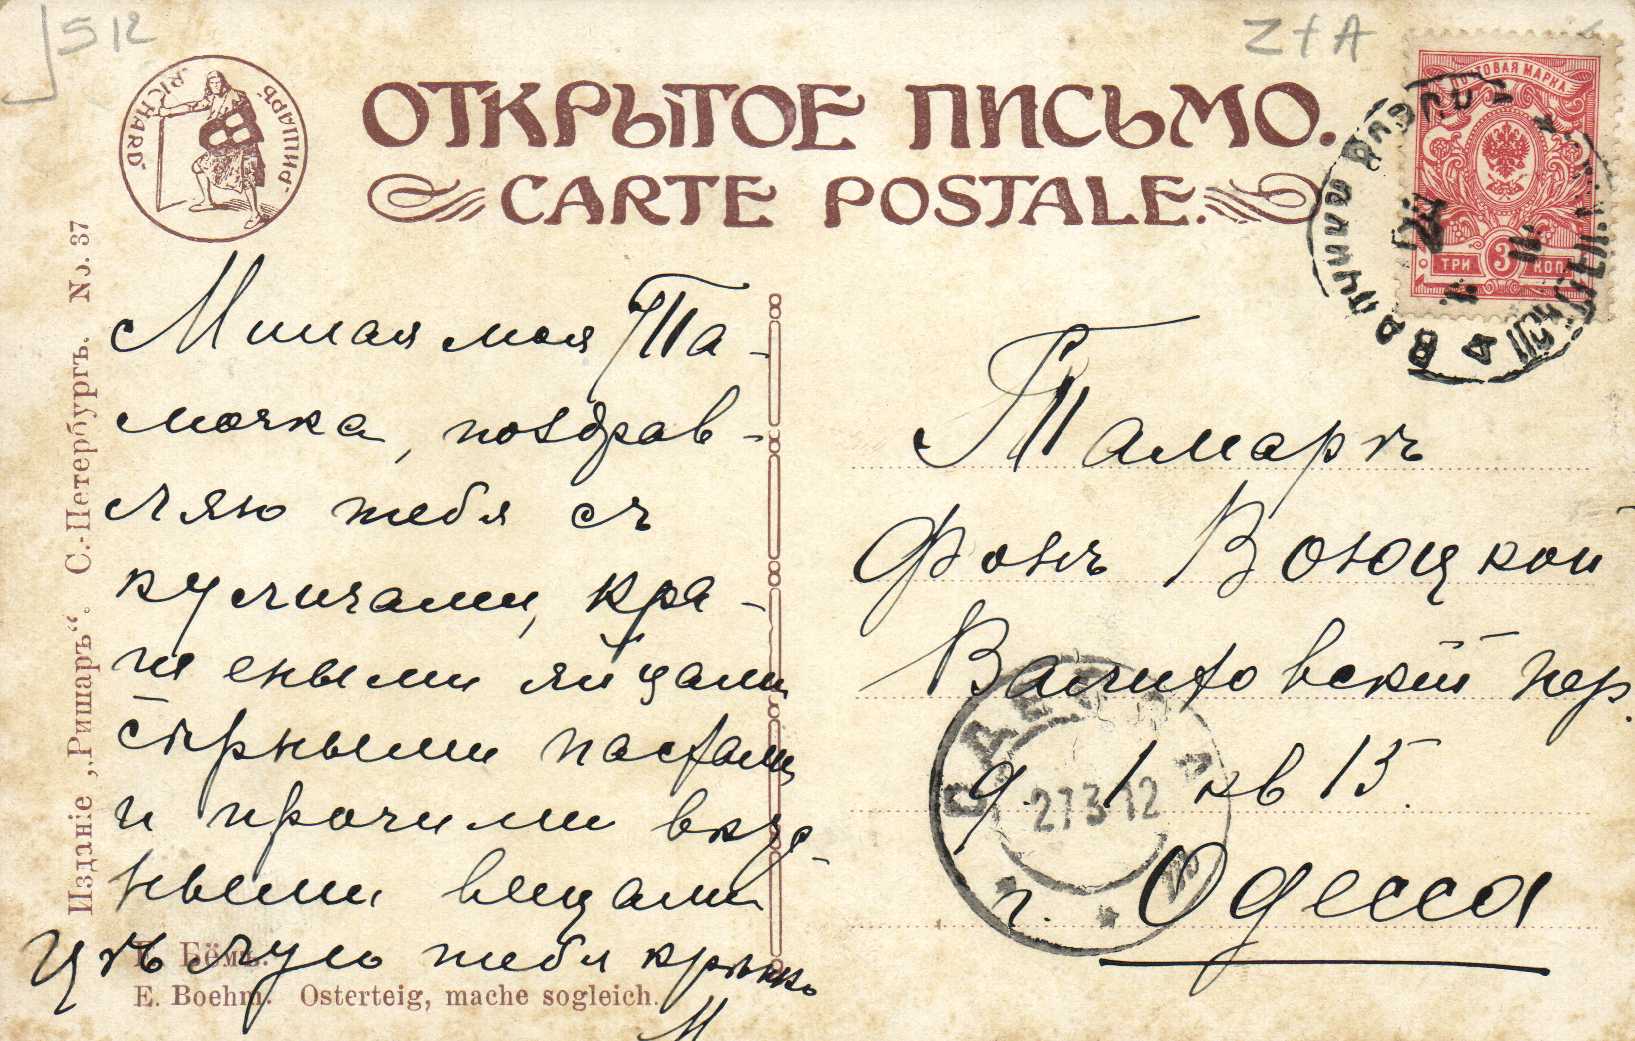 512
Z+A
РИШАРЪ. RICHARD
ОТКРЫТОЕ ПИСЬМО.
CARTE POSTALE.
ПОЧТОВАЯ МАРКА
ТРИ 3 КОП
Изданіе „Ришаръ“. С.-Петербургъ. No. 37
Милая моя Та-
мочка, поздрав-
ляю тебя съ
куличами, кра-
шеными яйцами
сырными пасхами
и прочими вкус-
ными вещами
Цѣлую тебя крѣпко
М
Е. Бёмъ.
E. Boehm. Osterteig, mache sogleich.
Тамарѣ
фонъ
Валиховскій пер.
д. 1 кв 15.
г. Одесса
ОДЕССА
27 3 12